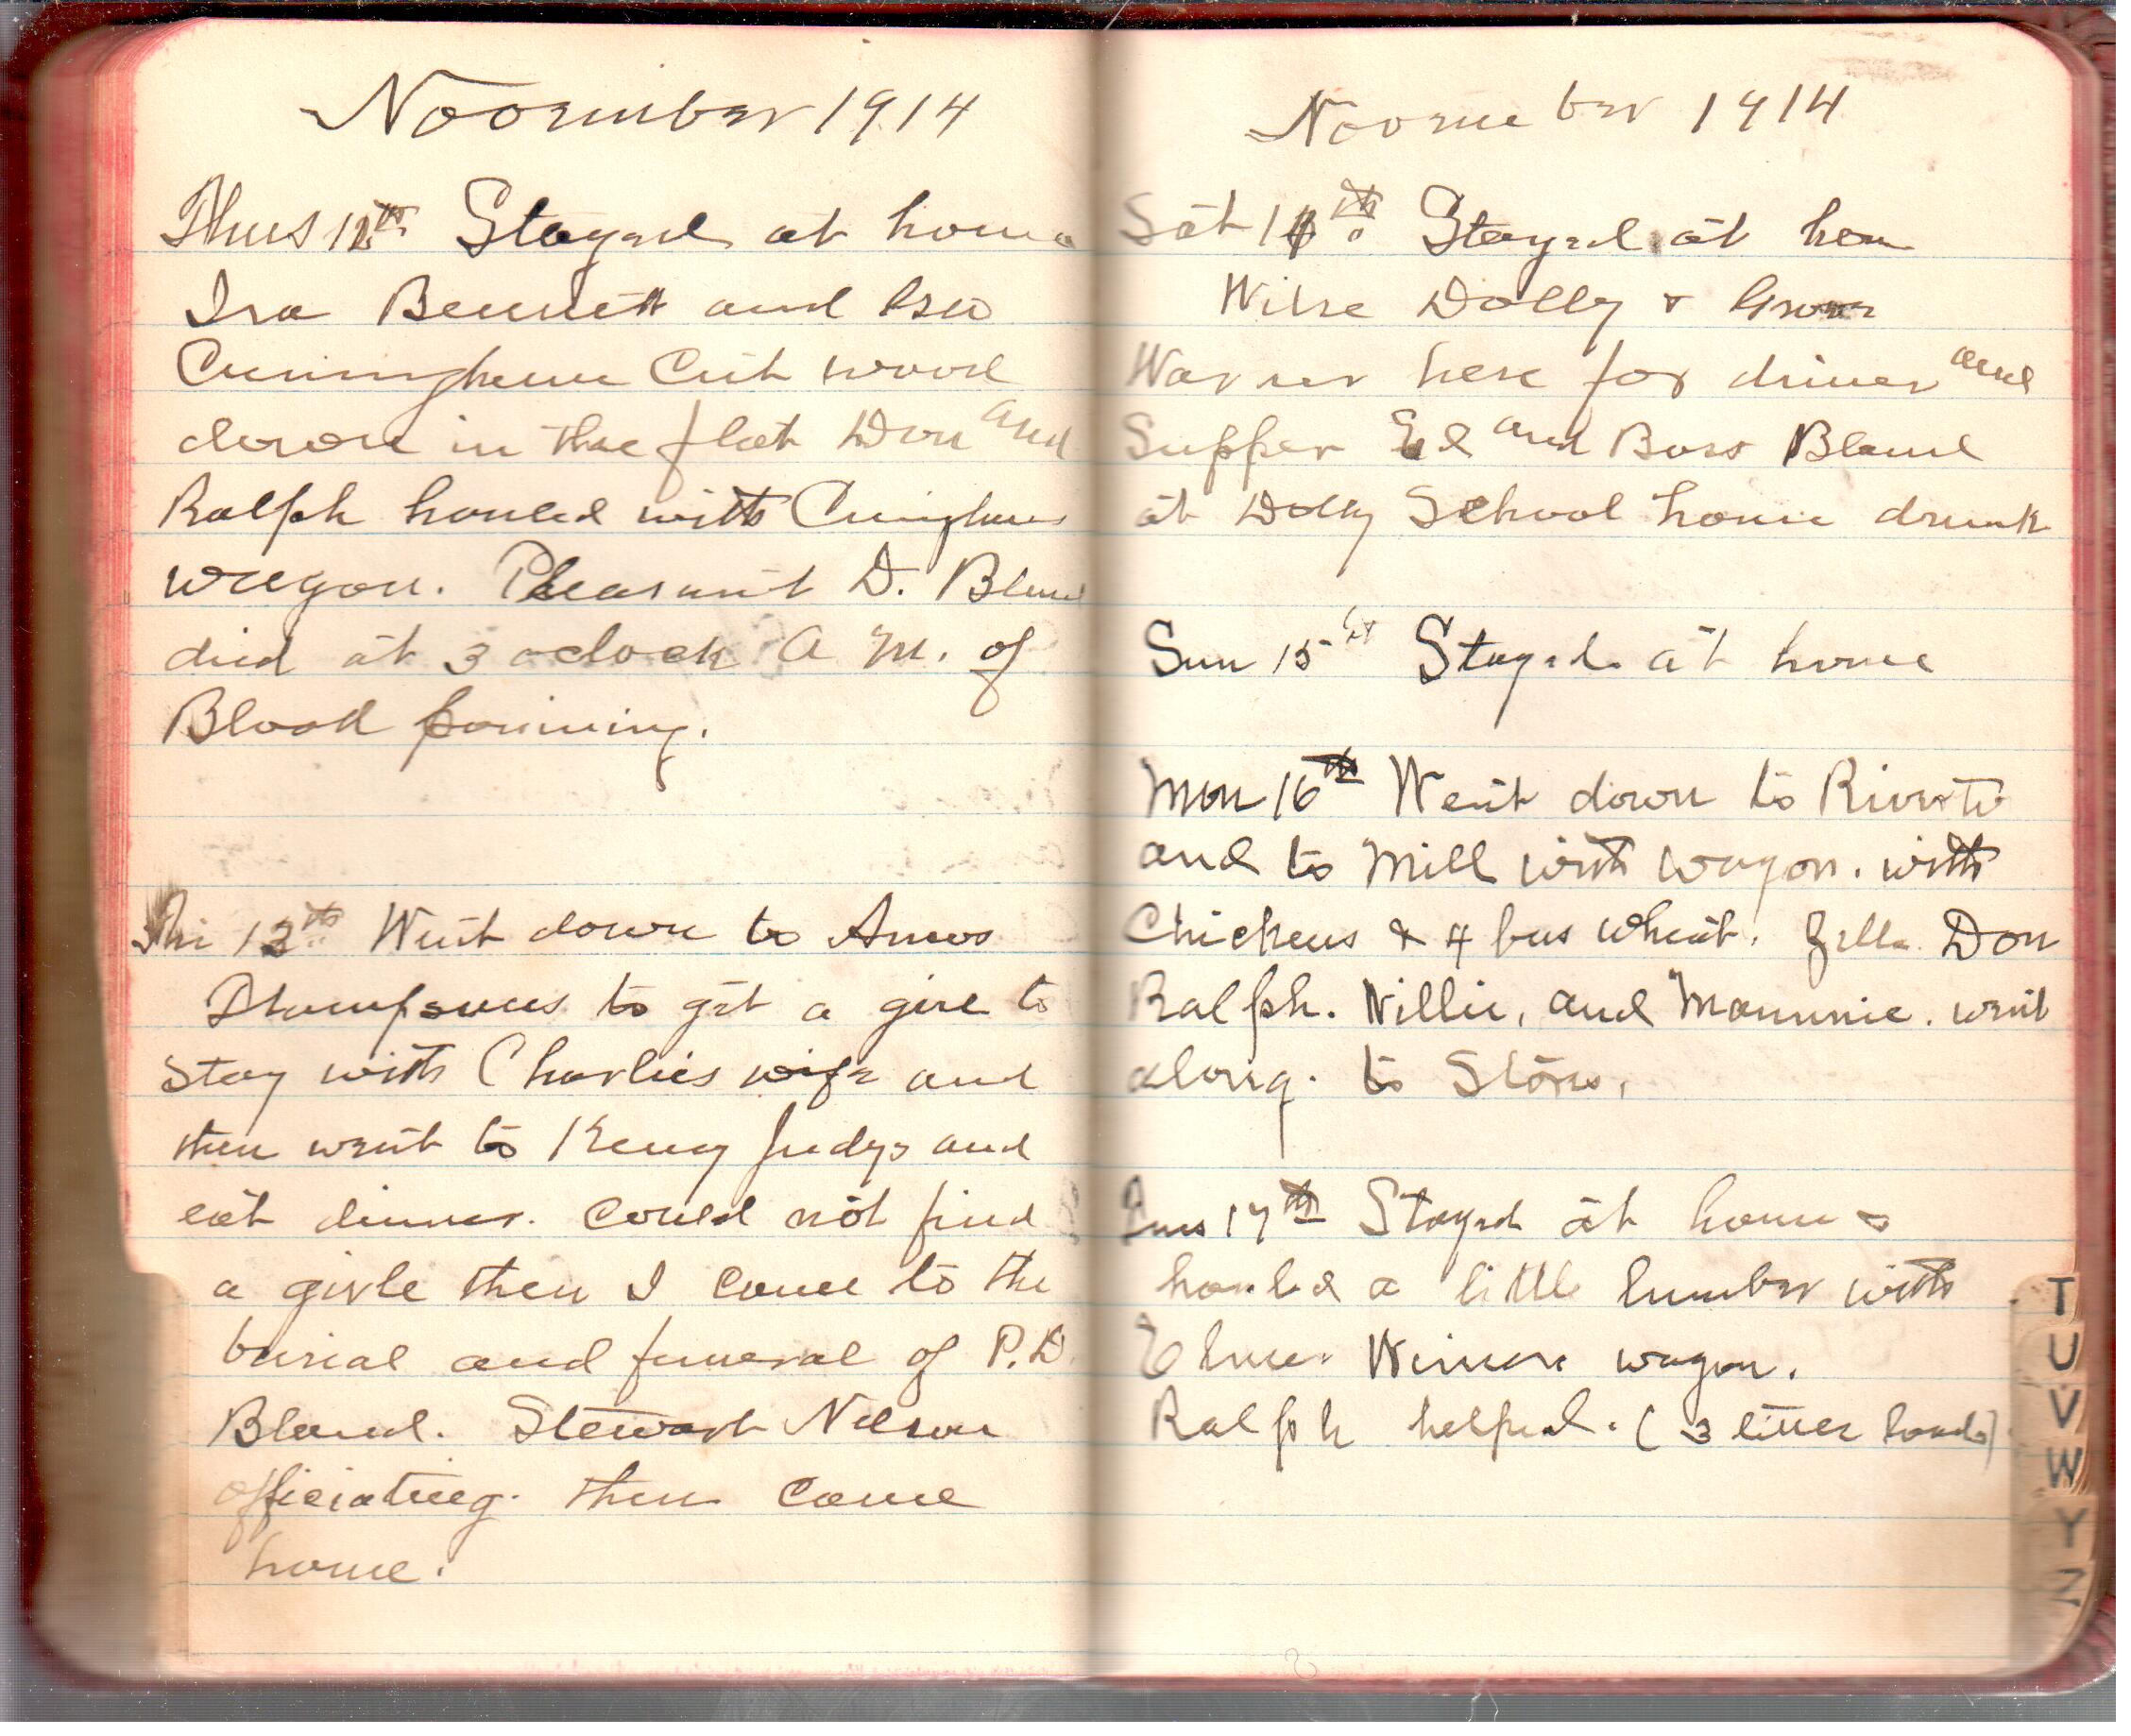 November 1914
Thurs 12th Stayed at home
Ira Bennett and Geo
Cuningham Cut wood
down in the flat Don and
Ralph hauled with Cuninghams
waggon. Pleasant D. Bland
died at 3 oclock A M. of
Blood poisining.
Fri 13th Went down to Amos
Thompsons to get a girl to
stay with Charlies wife and
then went to Keny Judys and
eat dinner. Could not find
a girle then I came to the
burial and funeral of P. D.
Bland. Stewart Nelson
officiating. then came
home.
November 1914
Sat 14th Stayed at hom
Wilse Dolly & Grover
Warner here for dinner and
Supper Ed and Boss Bland
at Dolly School house drunk
Sun 15 Stayed at home
Mon 16th Went down to Riverton
and to Mill with wagon. with
Chickens & 4 bus wheat. Zella Don
Ralph. Nillie, and Mammie. went
along. to Store.
Tues 17th Stayed at home &
hauled a little lumber with
Elmer Wimers wagon.
Ralph helped. (3 litter loads)
T
U
V
W
Y
Z